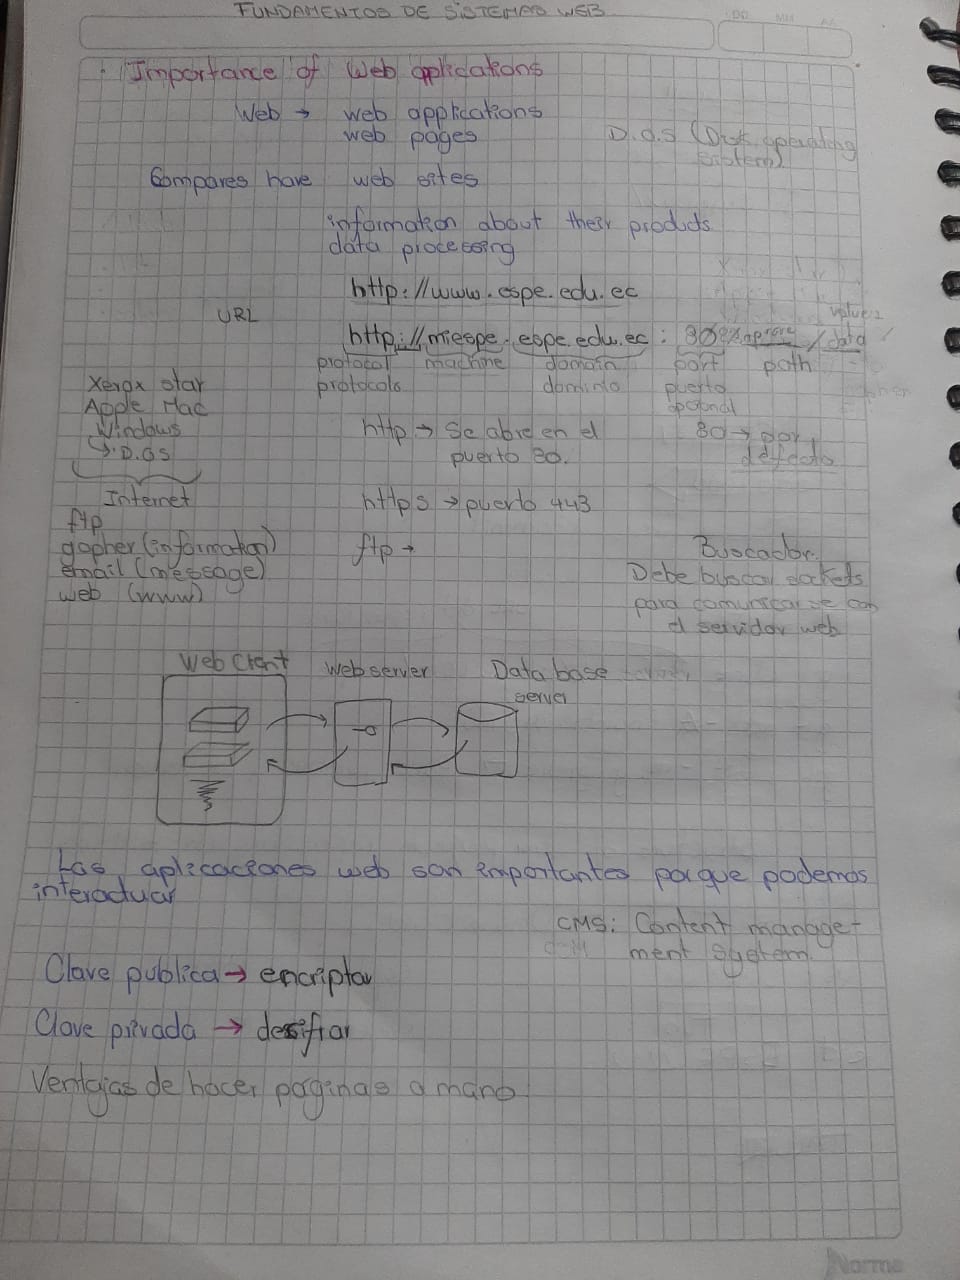 FUNDAMENTOS DE SISTEMAS WEB
DD MM AA
Importance of Web applications
Web → web applications
web pages
D.O.S (Disk operating
system)
Compares have web sites
information about their products
data processing
http://www.espe.edu.ec
URL
http://miespe.espe.edu.ec : 80 / data
protocol machine domain port path
protocols dominio puerto
opcional
Xerox star
Apple Mac
Windows
↳ D.O.S
http → Se abre en el
puerto 80.
80 → por
defecto
Internet
https → puerto 443
ftp
gopher (information)
email (message)
web (www)
ftp →
Buscador.
Debe buscar sockets
para comunicarse con
el servidor web
Web Client Web server Data base
server
Las aplicaciones web son importantes porque podemos
interactuar
CMS: Content manage-
ment system.
Clave publica → encriptar
Clave privada → desifrar
Ventajas de hacer paginas a mano
Norma